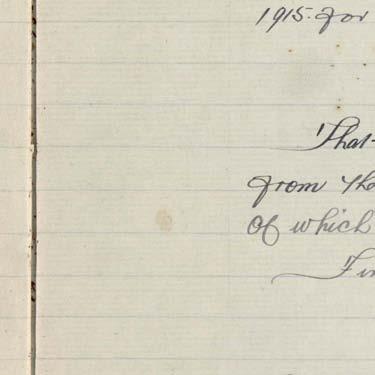 1915. for
That
from tha
of which
Fin